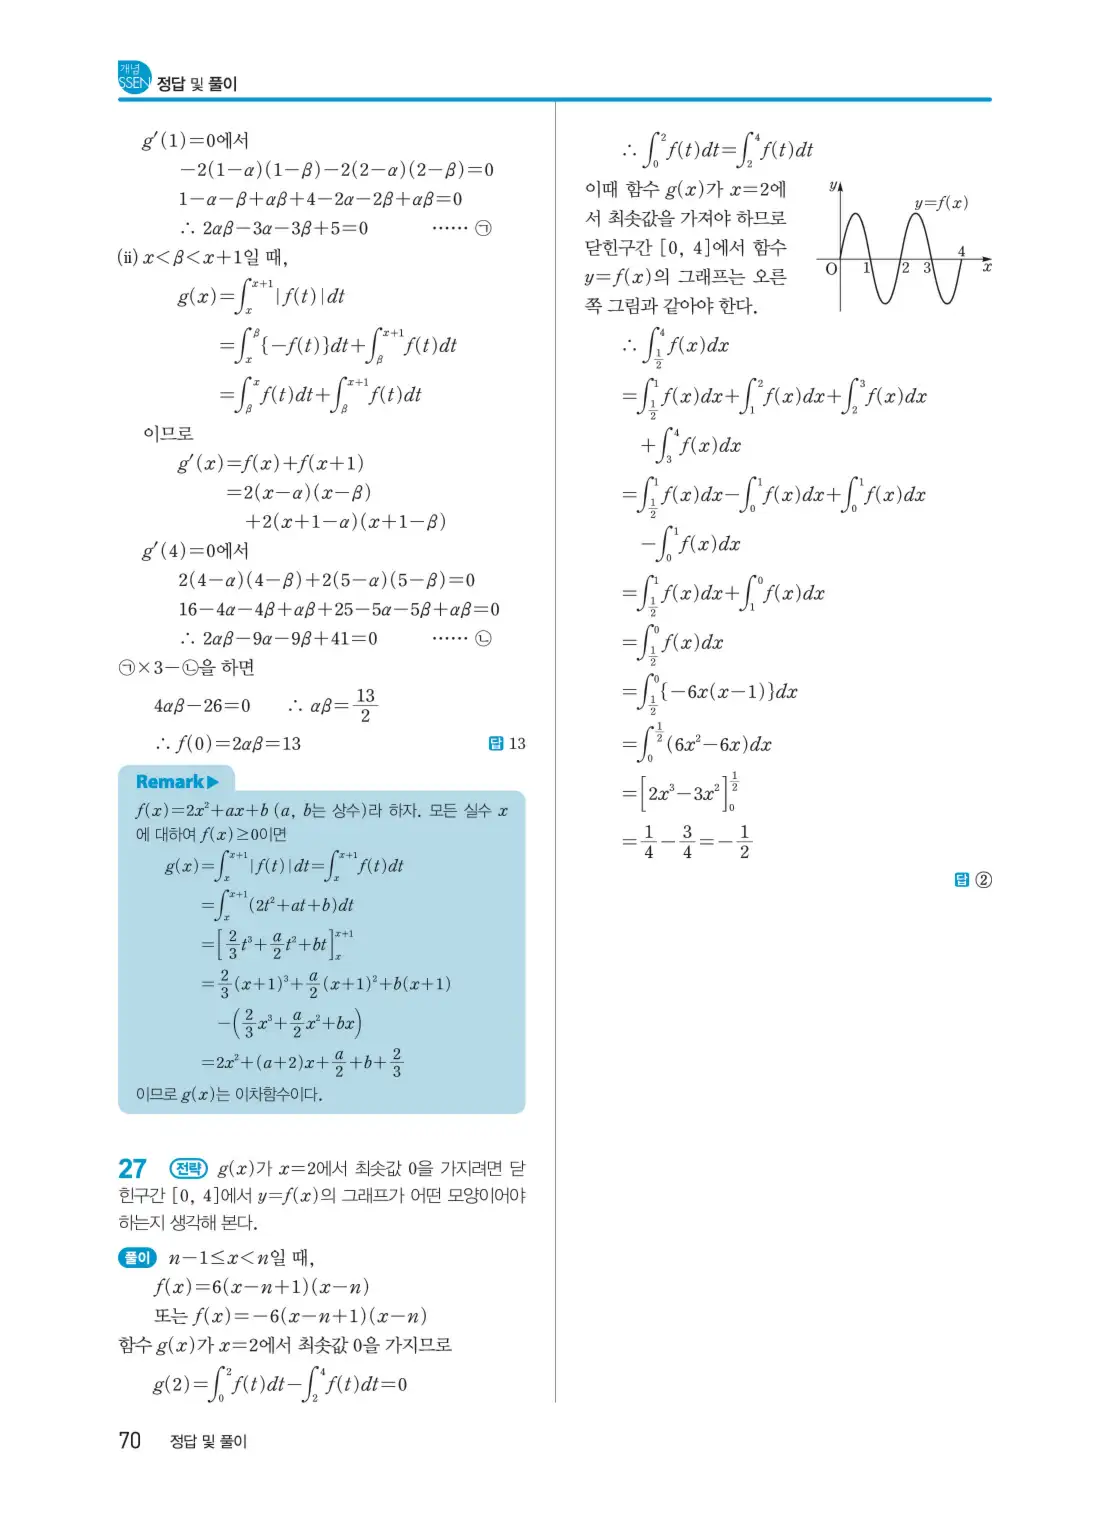 개념
SSEN 정답 및 풀이
g′(1)=0에서
−2(1−α)(1−β)−2(2−α)(2−β)=0
1−α−β+αβ+4−2α−2β+αβ=0
∴ 2αβ−3α−3β+5=0 …… ㉠
(ii) x<β<x+1일 때,
g(x)=∫_x^{x+1}|f(t)|dt
=∫_x^β{−f(t)}dt+∫_β^{x+1}f(t)dt
=∫_β^x f(t)dt+∫_β^{x+1}f(t)dt
이므로
g′(x)=f(x)+f(x+1)
=2(x−α)(x−β)
+2(x+1−α)(x+1−β)
g′(4)=0에서
2(4−α)(4−β)+2(5−α)(5−β)=0
16−4α−4β+αβ+25−5α−5β+αβ=0
∴ 2αβ−9α−9β+41=0 …… ㉡
㉠×3−㉡을 하면
4αβ−26=0 ∴ αβ=13/2
∴ f(0)=2αβ=13 답 13
Remark▶
f(x)=2x²+ax+b (a, b는 상수)라 하자. 모든 실수 x
에 대하여 f(x)≥0이면
g(x)=∫_x^{x+1}|f(t)|dt=∫_x^{x+1}f(t)dt
=∫_x^{x+1}(2t²+at+b)dt
=[2/3t³+a/2t²+bt]_x^{x+1}
=2/3(x+1)³+a/2(x+1)²+b(x+1)
−(2/3x³+a/2x²+bx)
=2x²+(a+2)x+a/2+b+2/3
이므로 g(x)는 이차함수이다.
27 전략 g(x)가 x=2에서 최솟값 0을 가지려면 닫
힌구간 [0, 4]에서 y=f(x)의 그래프가 어떤 모양이어야
하는지 생각해 본다.
풀이 n−1≤x<n일 때,
f(x)=6(x−n+1)(x−n)
또는 f(x)=−6(x−n+1)(x−n)
함수 g(x)가 x=2에서 최솟값 0을 가지므로
g(2)=∫_0^2 f(t)dt−∫_2^4 f(t)dt=0
∴ ∫_0^2 f(t)dt=∫_2^4 f(t)dt
이때 함수 g(x)가 x=2에
서 최솟값을 가져야 하므로
닫힌구간 [0, 4]에서 함수
y=f(x)의 그래프는 오른
쪽 그림과 같아야 한다.
y
y=f(x)
O 1 2 3 4 x
∴ ∫_{1/2}^4 f(x)dx
=∫_{1/2}^1 f(x)dx+∫_1^2 f(x)dx+∫_2^3 f(x)dx
+∫_3^4 f(x)dx
=∫_{1/2}^1 f(x)dx−∫_0^1 f(x)dx+∫_0^1 f(x)dx
−∫_0^1 f(x)dx
=∫_{1/2}^1 f(x)dx+∫_1^0 f(x)dx
=∫_{1/2}^0 f(x)dx
=∫_{1/2}^0{−6x(x−1)}dx
=∫_0^{1/2}(6x²−6x)dx
=[2x³−3x²]_0^{1/2}
=1/4−3/4=−1/2
답 ②
70 정답 및 풀이